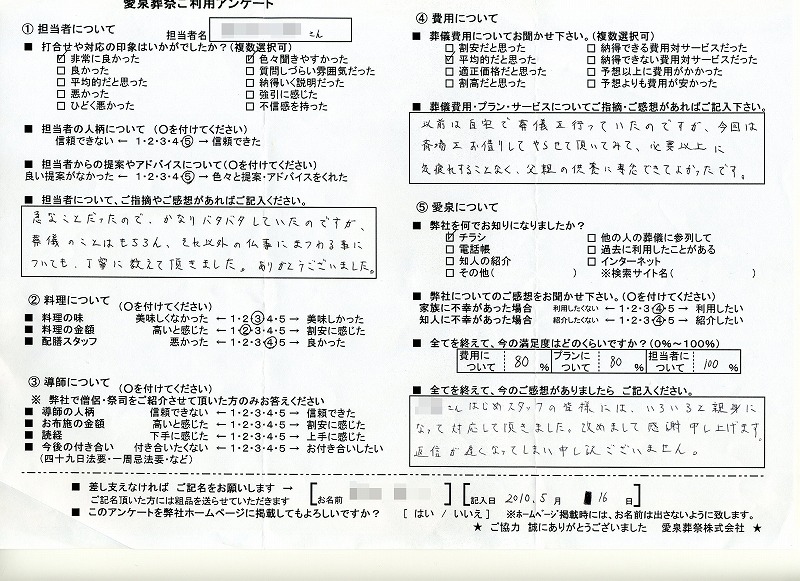 愛泉葬祭ご利用アンケート
① 担当者について
担当者名 さん
■ 打合せや対応の印象はいかがでしたか?(複数選択可)
☑ 非常に良かった ☑ 色々聞きやすかった
□ 良かった □ 質問しづらい雰囲気だった
□ 平均的だと思った □ 納得いく説明だった
□ 悪かった □ 強引に感じた
□ ひどく悪かった □ 不信感を持った
■ 担当者の人柄について (○を付けてください)
信頼できない ← 1・2・3・4・⑤ → 信頼できた
■ 担当者からの提案やアドバイスについて(○を付けてください)
良い提案がなかった ← 1・2・3・4・⑤ → 色々と提案・アドバイスをくれた
■ 担当者について、ご指摘やご感想があればご記入ください。
急なことだったので、かなりバタバタしていたのですが、
葬儀のことはもちろん、それ以外の仏事にまつわる事に
ついても、丁寧に教えて頂きました。ありがとうございました。
② 料理について (○を付けてください)
■ 料理の味 美味しくなかった ← 1・2・③・4・5 → 美味しかった
■ 料理の金額 高いと感じた ← 1・②・3・4・5 → 割安に感じた
■ 配膳スタッフ 悪かった ← 1・2・3・④・5 → 良かった
③ 導師について (○を付けてください)
※ 弊社で僧侶・祭司をご紹介させて頂いた方のみお答えください
■ 導師の人柄 信頼できない ← 1・2・3・4・5 → 信頼できた
■ お布施の金額 高いに感じた ← 1・2・3・4・5 → 割安に感じた
■ 読経 下手に感じた ← 1・2・3・4・5 → 上手に感じた
■ 今後の付き合い 付き合いたくない ← 1・2・3・4・5 → お付き合いしたい
(四十九日法要・一周忌法要・など)
④ 費用について
■ 葬儀費用についてお聞かせ下さい。(複数選択可)
□ 割安だと思った □ 納得できる費用対サービスだった
☑ 平均的だと思った □ 納得できない費用対サービスだった
□ 適正価格だと思った □ 予想以上に費用がかかった
□ 割高だと思った □ 予想よりも費用が安かった
■ 葬儀費用・プラン・サービスについてご指摘・ご感想があればご記入下さい。
以前は自宅で葬儀を行っていたのですが、今回は
斎場をお借りしてやらせて頂いてみて、必要以上に
気疲れすることなく、父親の供養に専念できてよかったです。
⑤ 愛泉について
■ 弊社を何でお知りになりましたか?
☑ チラシ □ 他の人の葬儀に参列して
□ 電話帳 □ 過去に利用したことがある
□ 知人の紹介 □ インターネット
□ その他( ) ※検索サイト名( )
■ 弊社についてのご感想をお聞かせ下さい。(○を付けてください)
家族に不幸があった場合 利用したくない ← 1・2・3・④・5 → 利用したい
知人に不幸があった場合 紹介したくない ← 1・2・3・④・5 → 紹介したい
■ 全てを終えて、今の満足度はどのくらいですか?(0%~100%)
費用について 80 % プランについて 80 % 担当者について 100 %
■ 全てを終えて、今のご感想がありましたら ご記入ください。
さんはじめスタッフの皆様には、いろいろと親身に
なって対応して頂きました。改めまして感謝申し上げます。
返信が遅くなってしまい申し訳ございません。
■ 差し支えなければ ご記名をお願いします →
ご記名頂いた方には粗品を送らせていただきます
[お名前 ] [記入日 2010.5月 16日]
■ このアンケートを弊社ホームページに掲載してもよろしいですか? [ はい / いいえ ] ※ホームページ掲載時には、お名前は出さないように致します。
★ ご協力 誠にありがとうございました 愛泉葬祭株式会社 ★